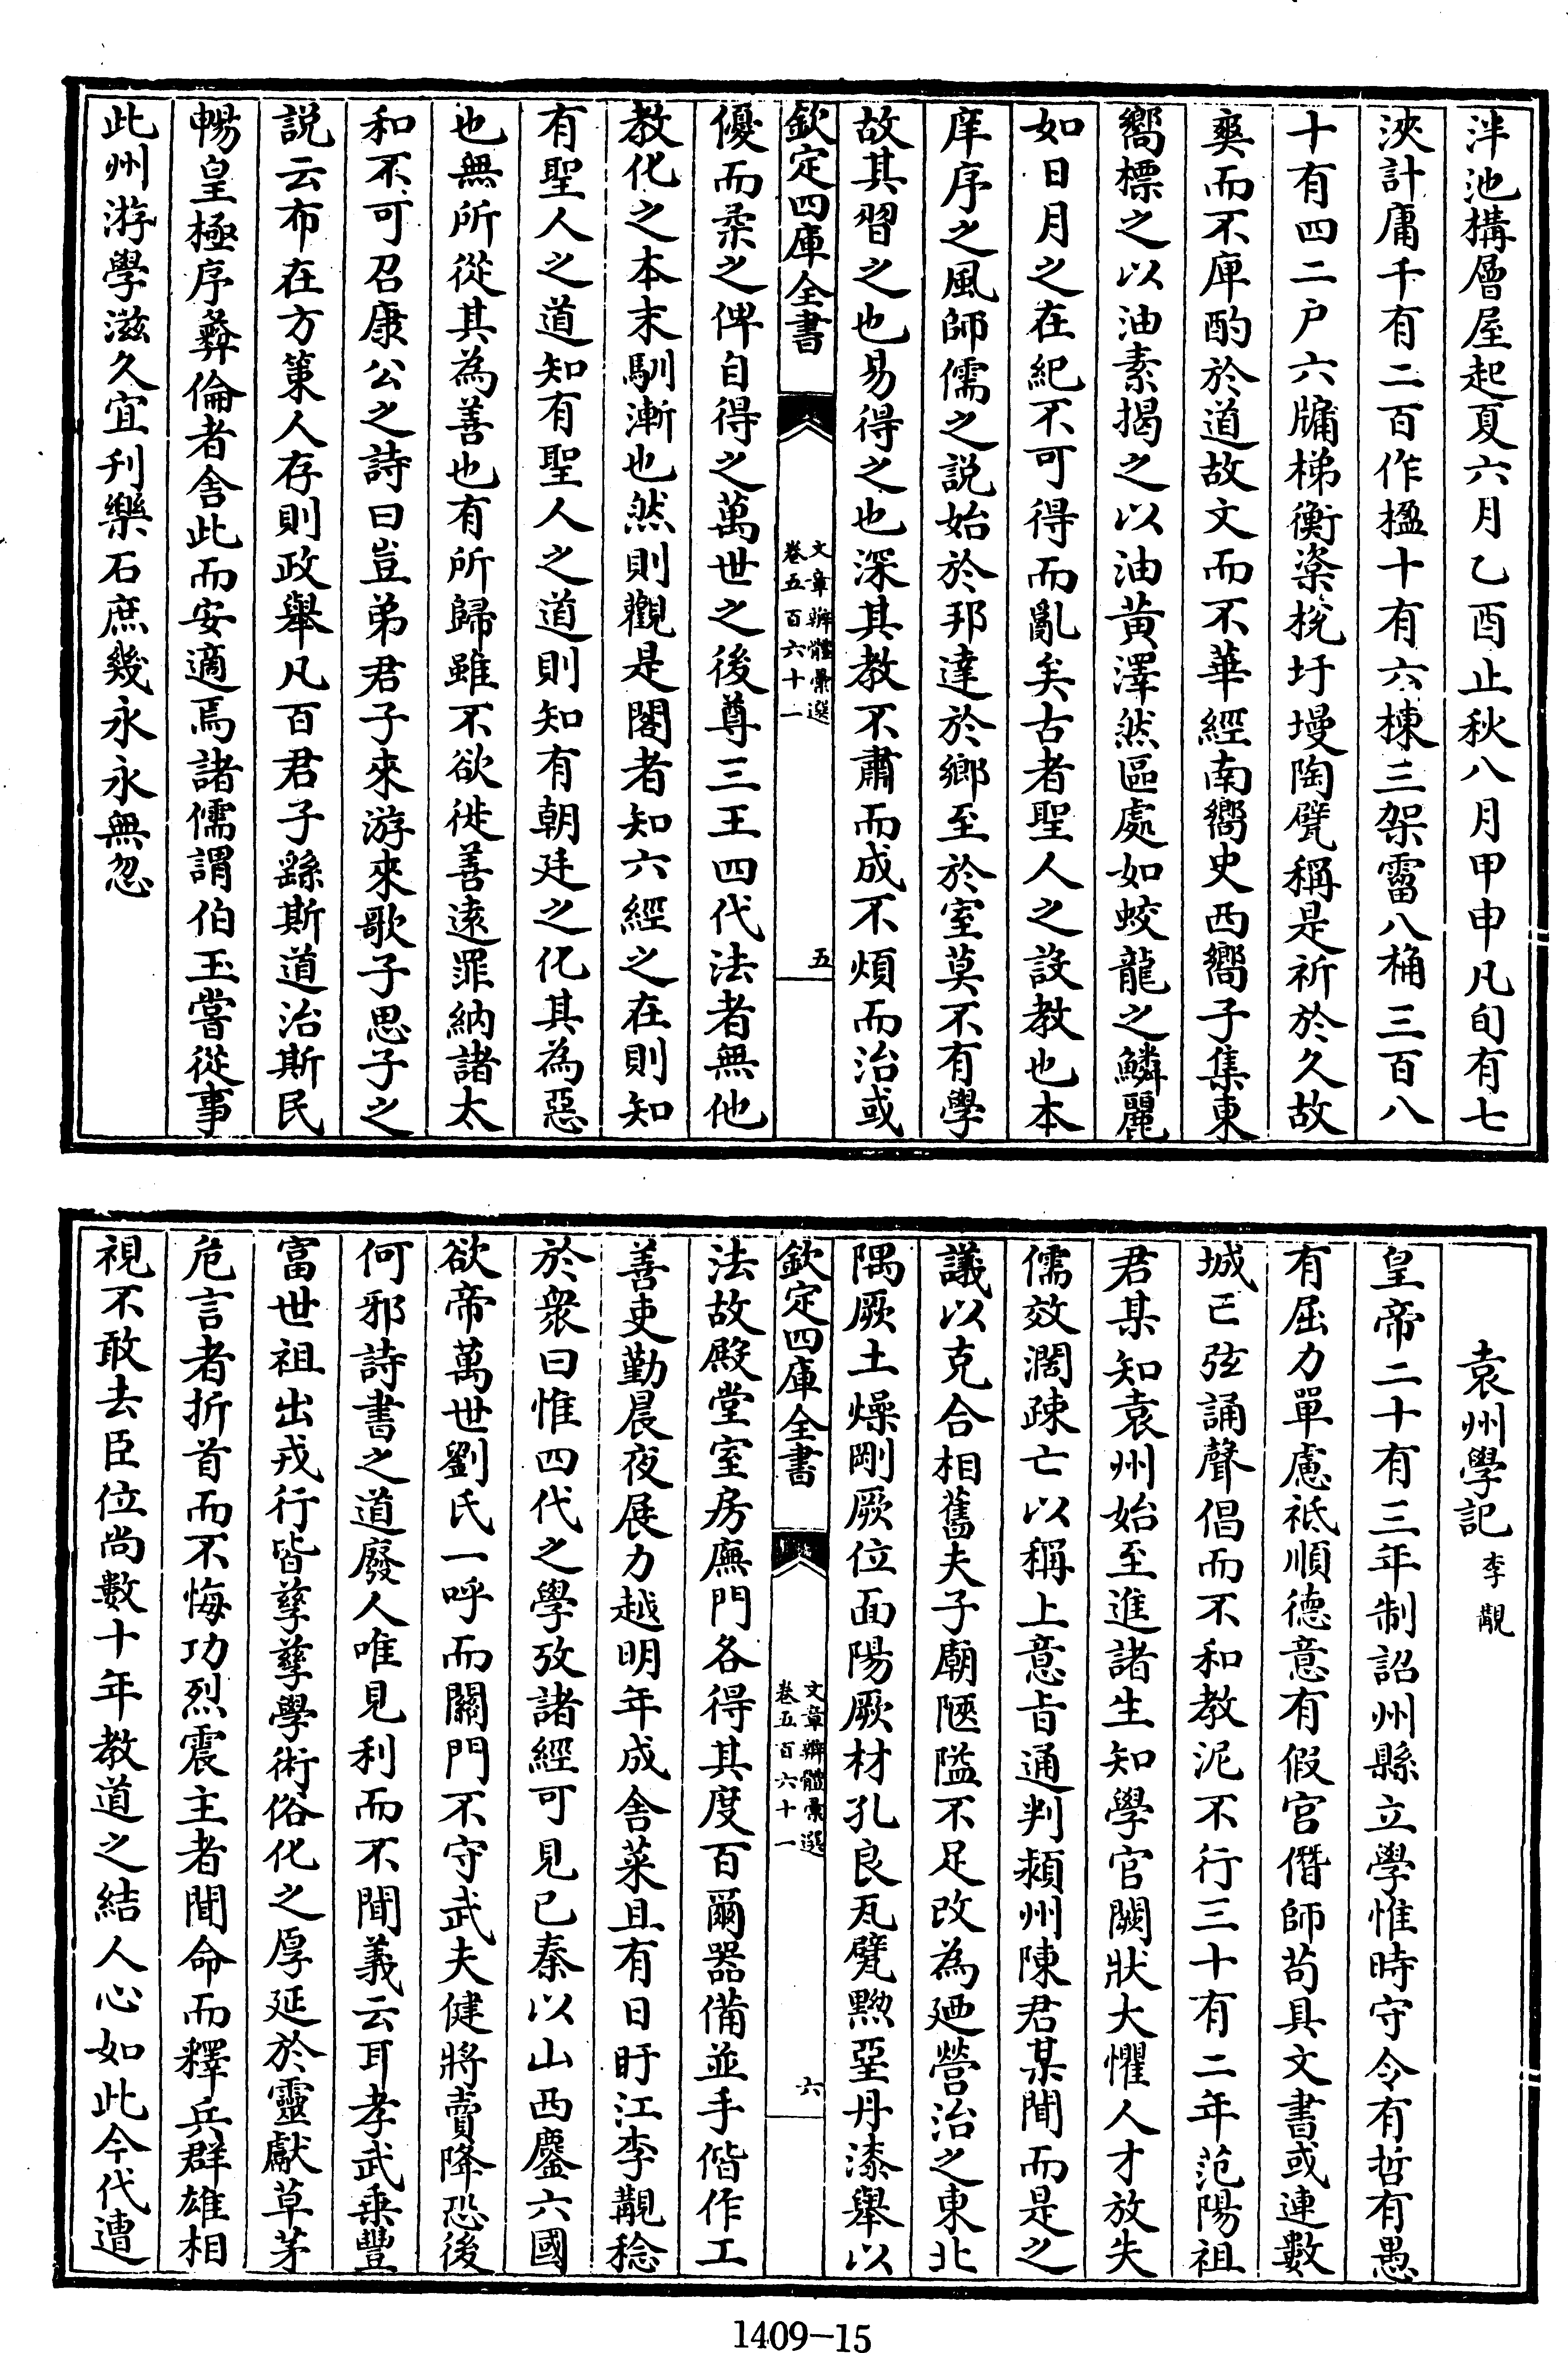 泮池構層屋起夏六月乙酉止秋八月甲申凡旬有七
浹計庸千有二百作楹十有六棟三架霤八桷三百八
十有四二户六牖梯衡楶梲圬墁陶甓稱是祈於久故
爽而不庳酌於道故文而不華經南嚮史西嚮子集東
嚮標之以油素揭之以油黄澤然區處如蛟龍之鱗麗
如日月之在紀不可得而亂矣古者聖人之設教也本
庠序之風師儒之説始於邦達於鄉至於室莫不有學
故其習之也易得之也深其教不肅而成不煩而治或
欽定四庫全書
文章辨體彙選
卷五百六十一
五
優而柔之俾自得之萬世之後尊三王四代法者無他
教化之本末馴漸也然則觀是閣者知六經之在則知
有聖人之道知有聖人之道則知有朝廷之化其為惡
也無所從其為善也有所歸雖不欲徙善遠罪納諸太
和不可召康公之詩曰豈弟君子來游來歌子思子之
説云布在方策人存則政舉凡百君子繇斯道治斯民
暢皇極序彝倫者舍此而安適焉諸儒謂伯玉嘗從事
此州游學滋久宜刋樂石庶幾永永無忽
袁州學記 李覯
皇帝二十有三年制詔州縣立學惟時守令有哲有愚
有屈力單慮祗順德意有假官僭師苟具文書或連數
城亡弦誦聲倡而不和教泥不行三十有二年范陽祖
君某知袁州始至進諸生知學官闕狀大懼人才放失
儒效濶疎亡以稱上意旨通判潁州陳君某聞而是之
議以克合相舊夫子廟陿隘不足改為廼營治之東北
隅厥土燥剛厥位面陽厥材孔良瓦甓黝堊丹漆舉以
欽定四庫全書
文章辨體彙選
卷五百六十一
六
法故殿堂室房廡門各得其度百爾器備並手偕作工
善吏勤晨夜展力越明年成舍菜且有日盱江李覯稔
於衆曰惟四代之學攷諸經可見已秦以山西鏖六國
欲帝萬世劉氏一呼而關門不守武夫健將賣降恐後
何邪詩書之道廢人唯見利而不聞義云耳孝武乗豐
富世祖出戎行皆孳孳學術俗化之厚延於靈獻草茅
危言者折首而不悔功烈震主者聞命而釋兵群雄相
視不敢去臣位尚數十年教道之結人心如此今代遭
1409-15